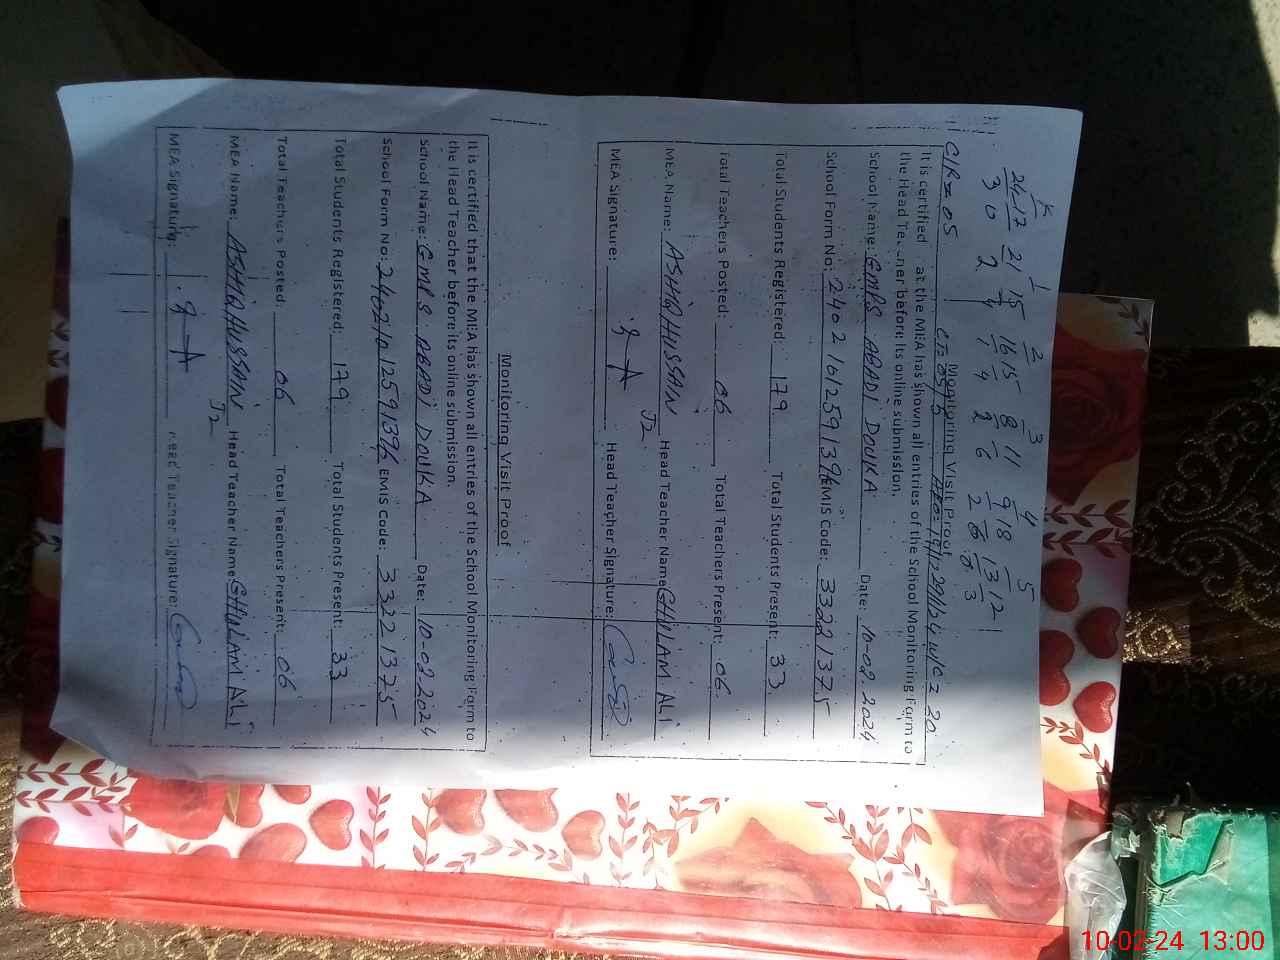 K 1 2 3 4 5
24 17 21 15 16 15 8 11 9 18 13 12
3 0 2 4 1 4 2 6 2 6 8 3
CIR = 05
Monitoring Visit Proof
It is certified at the MEA has shown all entries of the School Monitoring Form to
the Head Teacher before its online submission.
School Name: GMPS ABADI DOUKA Date: 10-02 2024
School Form No: EMIS Code: 33221375
Total Students Registered: 179 Total Students Present: 33
Total Teachers Posted: 06 Total Teachers Present: 06
MEA Name: ASHIQ HUSSAIN Head Teacher Name: GHULAM ALI
J2
MEA Signature: Head Teacher Signature:
Monitoring Visit Proof
It is certified that the MEA has shown all entries of the School Monitoring Form to
the Head Teacher before its online submission.
School Name: GMPS ABADI DOUKA Date: 10-02 2024
School Form No: EMIS Code: 33221375
Total Students Registered: 179 Total Students Present: 33
Total Teachers Posted: 06 Total Teachers Present: 06
MEA Name: ASHIQ HUSSAIN Head Teacher Name: GHULAM ALI
J2
MEA Signature: Head Teacher Signature:
10-02-24 13:00